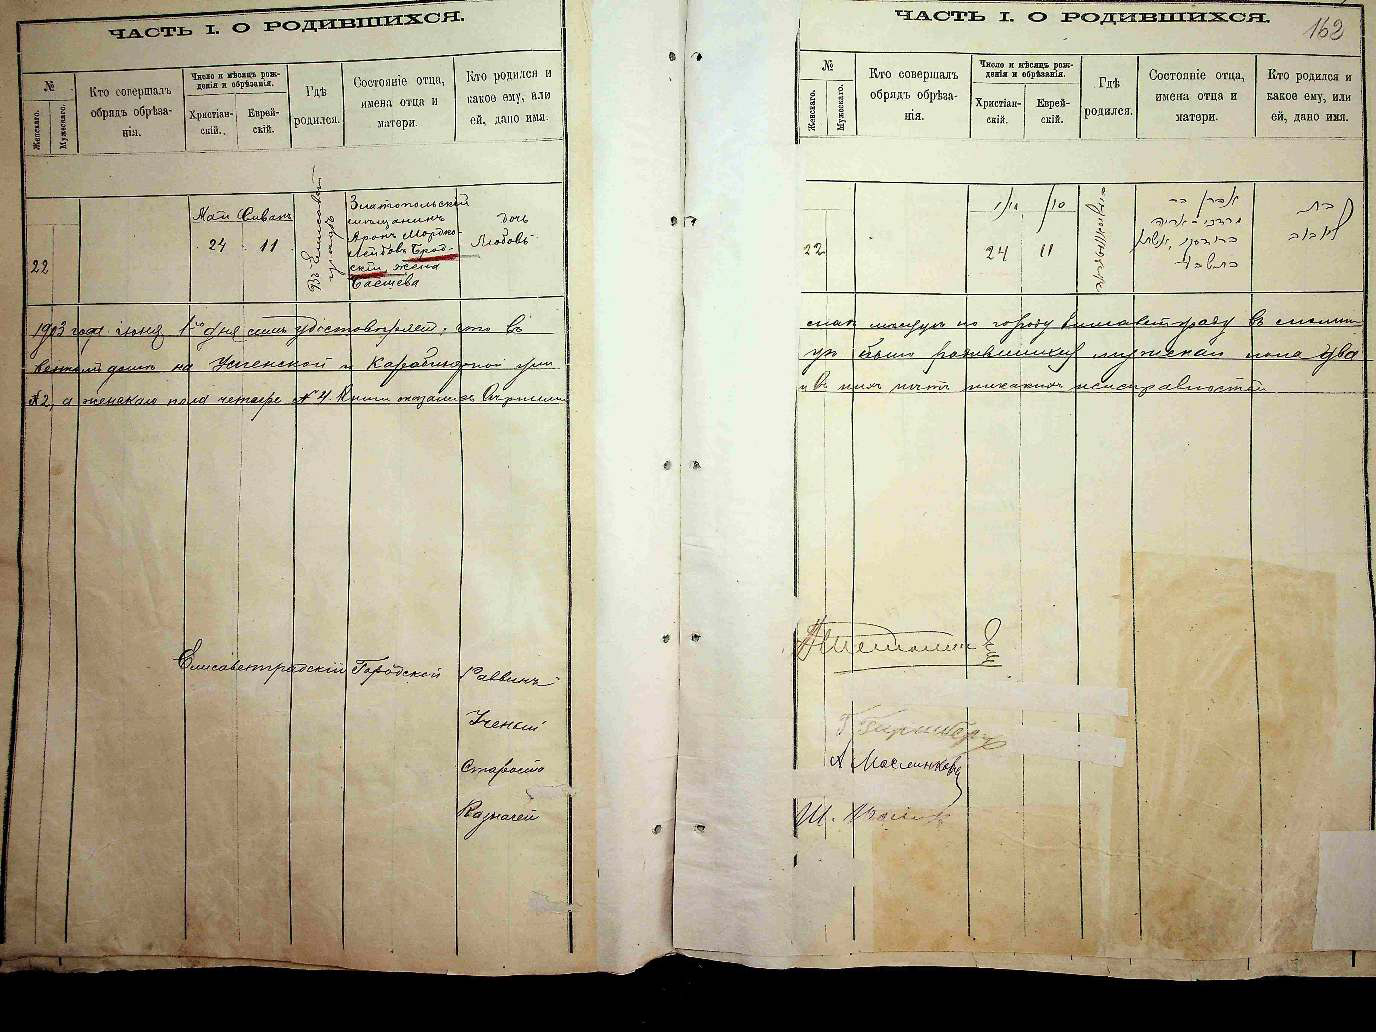 ЧАСТЬ I. О РОДИВШИХСЯ.
№
Женскаго.
Мужескаго.
Кто совершалъ
обрядъ обрѣза-
нія.
Число и мѣсяцъ рож-
денія и обрѣзанія.
Христіан-
скій.
Еврей-
скій.
Гдѣ
родился.
Состояніе отца,
имена отца и
матери.
Кто родился и
какое ему, или
ей, дано имя.
22
Май Сиванъ
24 11
Въ Елисавет
градѣ
Златопольскій
мѣщанинъ
Аронъ Мордко-
Лейбовъ Брод-
скій, жена
Басшева
дочь
Любовь
1903 года июня 1-го дня симъ удостовѣряемъ, что въ
домѣ на Успенской и Карабинерной
№ 2, а женскаго пола четыре № 4. Книги оказались
Елисаветградскій Городской Раввинъ
Ученый
Староста
Казначей
ЧАСТЬ I. О РОДИВШИХСЯ.
162
№
Женскаго.
Мужескаго.
Кто совершалъ
обрядъ обрѣза-
нія.
Число и мѣсяцъ рож-
денія и обрѣзанія.
Христіан-
скій.
Еврей-
скій.
Гдѣ
родился.
Состояніе отца,
имена отца и
матери.
Кто родился и
какое ему, или
ей, дано имя.
22
24 11
אהרן בר
מרדכי-אריה
ברודסקי, אשתו
בתשבע
בת
мѣсяцѣ по городу Елисаветграду въ
было родившихся мужскаго пола два
и въ нихъ нѣтъ никакихъ неисправностей
А Масленков
Ш.